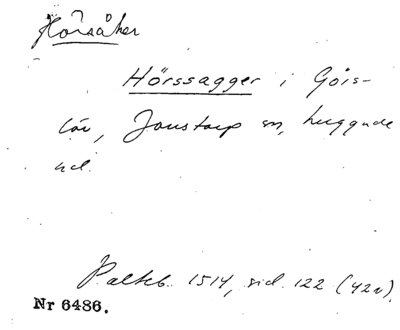 Hörsåker
Hörssagger i Göis-
löv, Jonstorp sn, Luggude
hd.
Palteb. 1514, sid. 122 (42r).
Nr 6486.